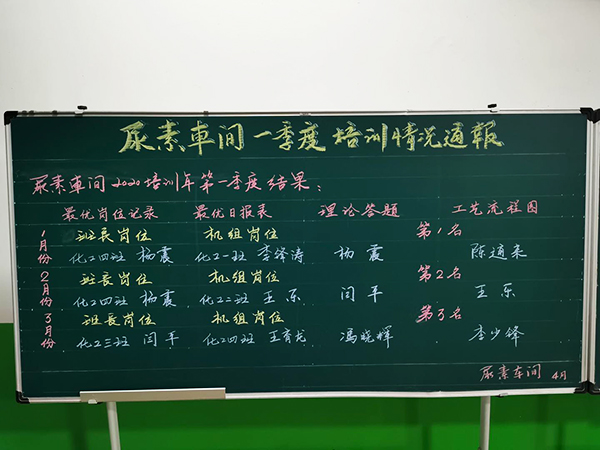 尿素車间一季度培训情况通報
尿素車间2020培训年第一季度结果：
最优岗位记录 最优日报表 理论答题 工艺流程图
1月份 班長岗位 机组岗位 第1名
化二四班 杨震 化二一班 李泽涛 杨震 陈通来
2月份 班長岗位 机组岗位 第2名
化二四班 杨震 化二二班 王东 闫平 王东
3月份 班長岗位 机组岗位 第3名
化二三班 闫平 化二四班 王育龙 冯晓辉 李少锋
尿素车间 4月